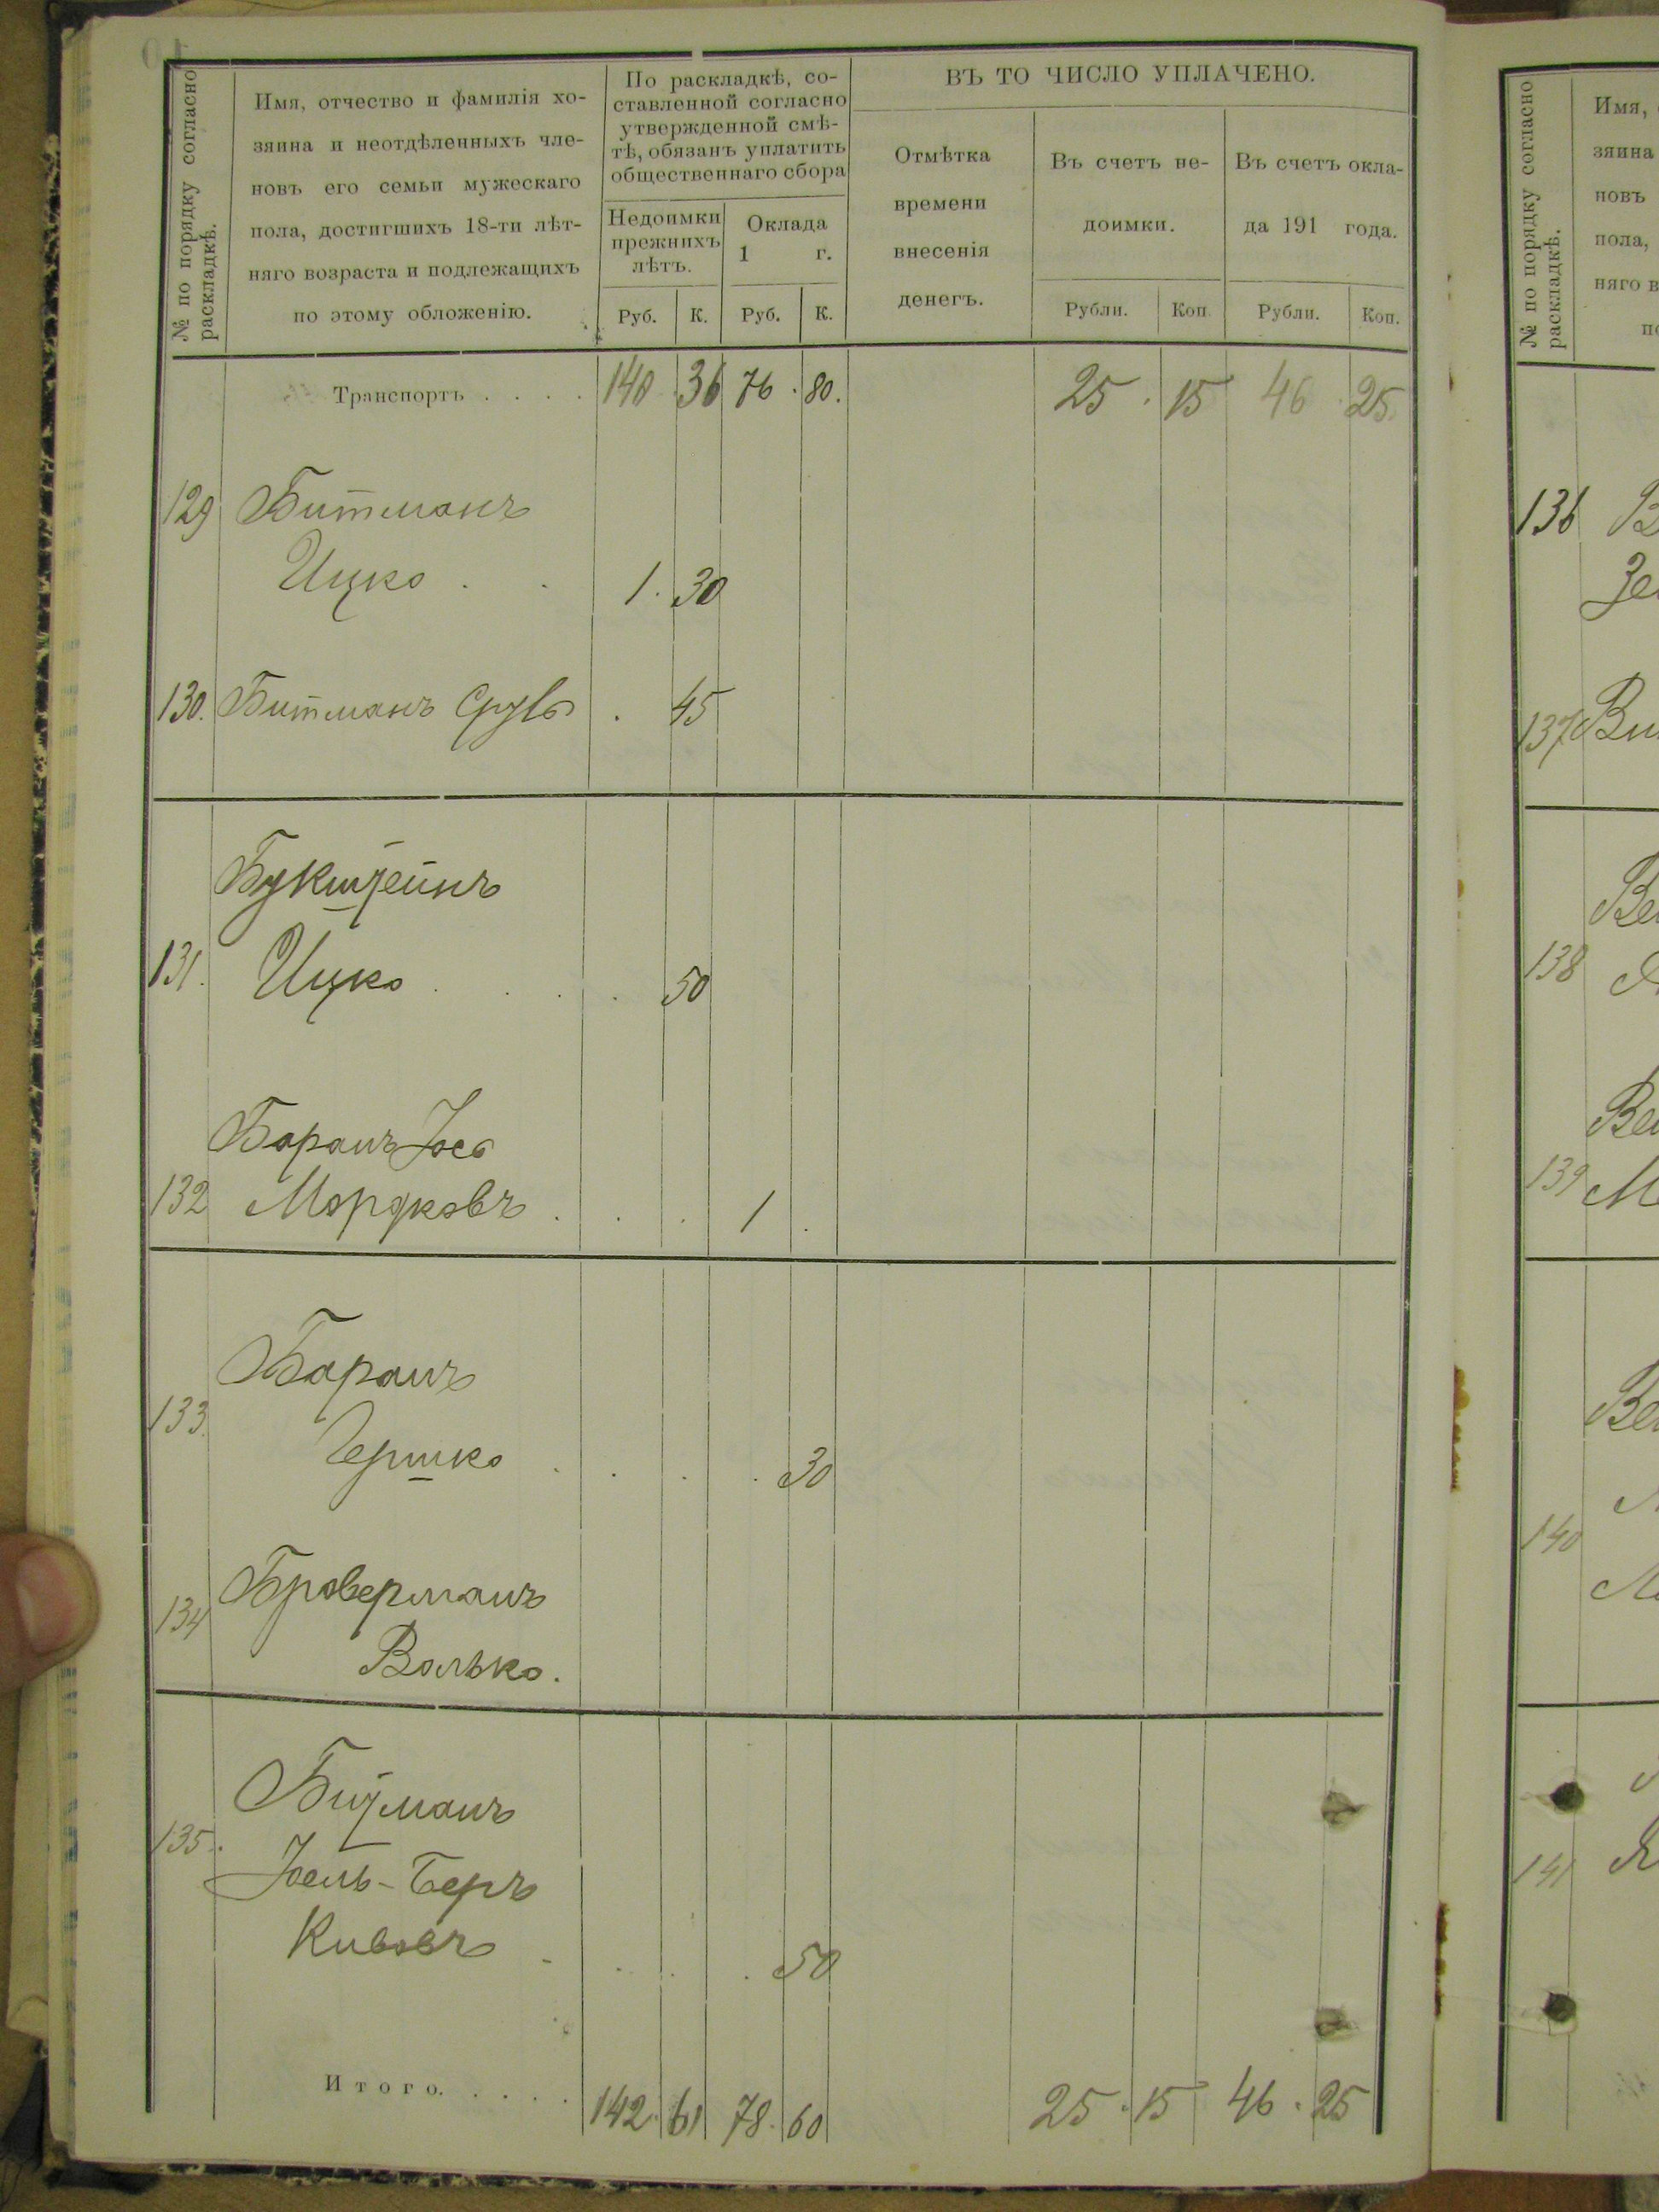 № по порядку согласно
раскладкѣ.
Имя, отчество и фамилія хо-
зяина и неотдѣленныхъ чле-
новъ его семьи мужескаго
пола, достигшихъ 18-ти лѣт-
няго возраста и подлежащихъ
по этому обложенію.
По раскладкѣ, со-
ставленной согласно
утвержденной смѣ-
тѣ, обязанъ уплатить
общественнаго сбора
Недоимки
прежнихъ
лѣтъ.
Оклада
1 г.
Руб. К. Руб. К.
ВЪ ТО ЧИСЛО УПЛАЧЕНО.
Отмѣтка
времени
внесенія
денегъ.
Въ счетъ не-
доимки.
Въ счетъ окла-
да 191 года.
Рубли. Коп. Рубли. Коп.
Транспортъ . . . . 140 36 76 . 80. 25 . 15 46 . 25.
129 Битманъ
Ицко . . 1. 30
130. Битманъ Сруль . 45
Букштейнъ
131. Ицко . . . . 50
Баранъ Іось
132 Мордковъ . . . 1 .
Баранъ
133. Гершко . . . . 30
Броверманъ
134
Волько.
Битманъ
135.
Іоель-Беръ
Кивовъ . . . . 50
Итого. . . . . 142. 61 78. 60 25 . 15 46 . 25
№ по порядку согласно
раскладкѣ.
Имя,
зяина
новъ
пола,
няго в
136
137 Ви
138
139
140
141